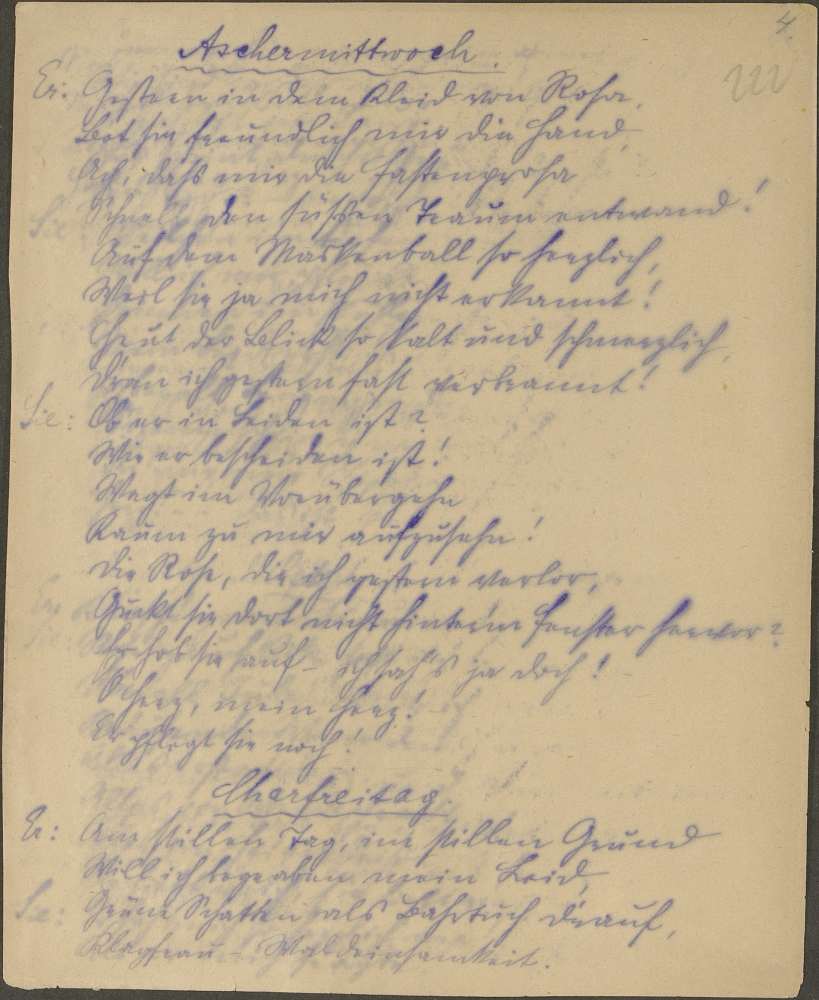 4.
Aschermittwoch.
Er: Gestern in dem Kleid von Rosa,
Bot sie freundlich mir die Hand,
Ach, daß mir die Fastenprosa
Schnell den süßen Traum entwand!
Auf dem Maskenball so herzlich,
Weil sie ja mich nicht erkannt!
Heut der Blick so kalt und schmerzlich,
Dran ich gestern fast verbrannt!
Sie: Ob er in Leiden ist?
Wie er bescheiden ist!
Wagt im Vorübergehn
Kaum zu mir aufzusehn!
Die Rose, die ich gestern verlor,
Guckt sie dort nicht hinterm Fenster hervor?
Er hob sie auf – ich sah's ja doch!
O Herz, mein Herz!
Er pflegt sie noch!
Charfreitag.
Er: Am stillen Tag, im stillen Grund
Will ich begraben mein Leid,
Sie: Grüne Schatten als Bahrtuch drauf,
Klagfrau – Waldeinsamkeit.